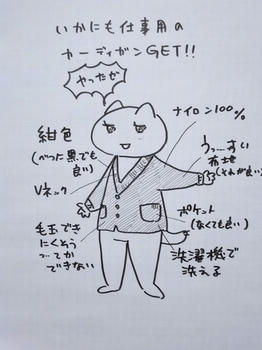 いかにも仕事用の
カーディガンGET!!
やったぜ
ナイロン100%
紺色
(べつに黒でも
良い)
うっ…すい
布地
(それが良い)
Vネック
ポケット
(なくても良い)
毛玉でき
にくそう
…てか
できない
洗濯機で
洗える